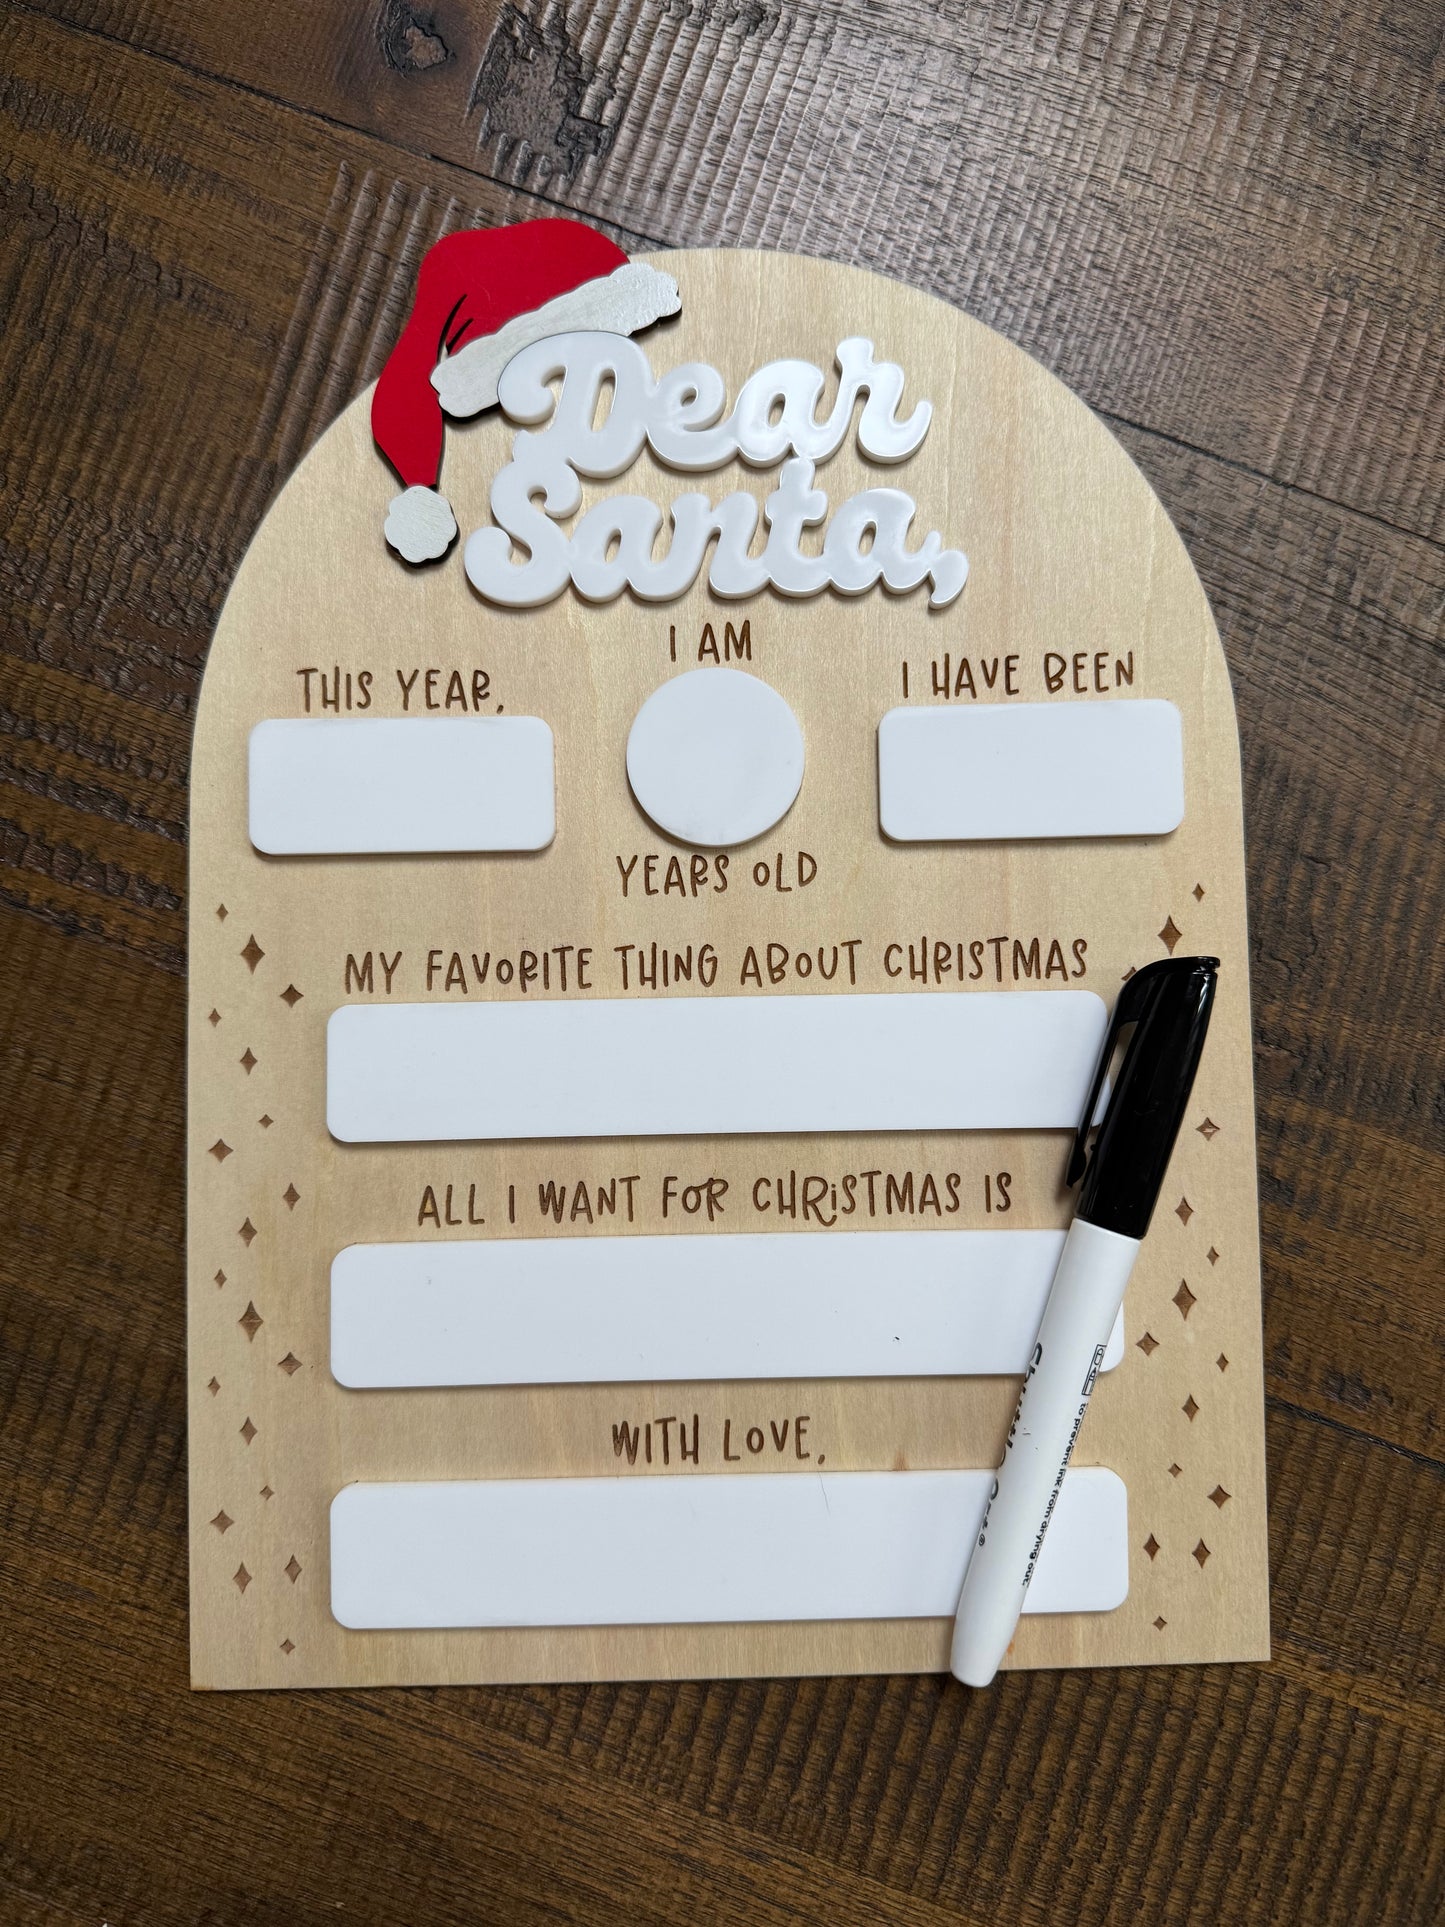 Dear
Santa,
I AM
THIS YEAR,
I HAVE BEEN
YEARS OLD
MY FAVORITE THING ABOUT CHRISTMAS
ALL I WANT FOR CHRISTMAS IS
WITH LOVE,
to prevent ink from drying out.